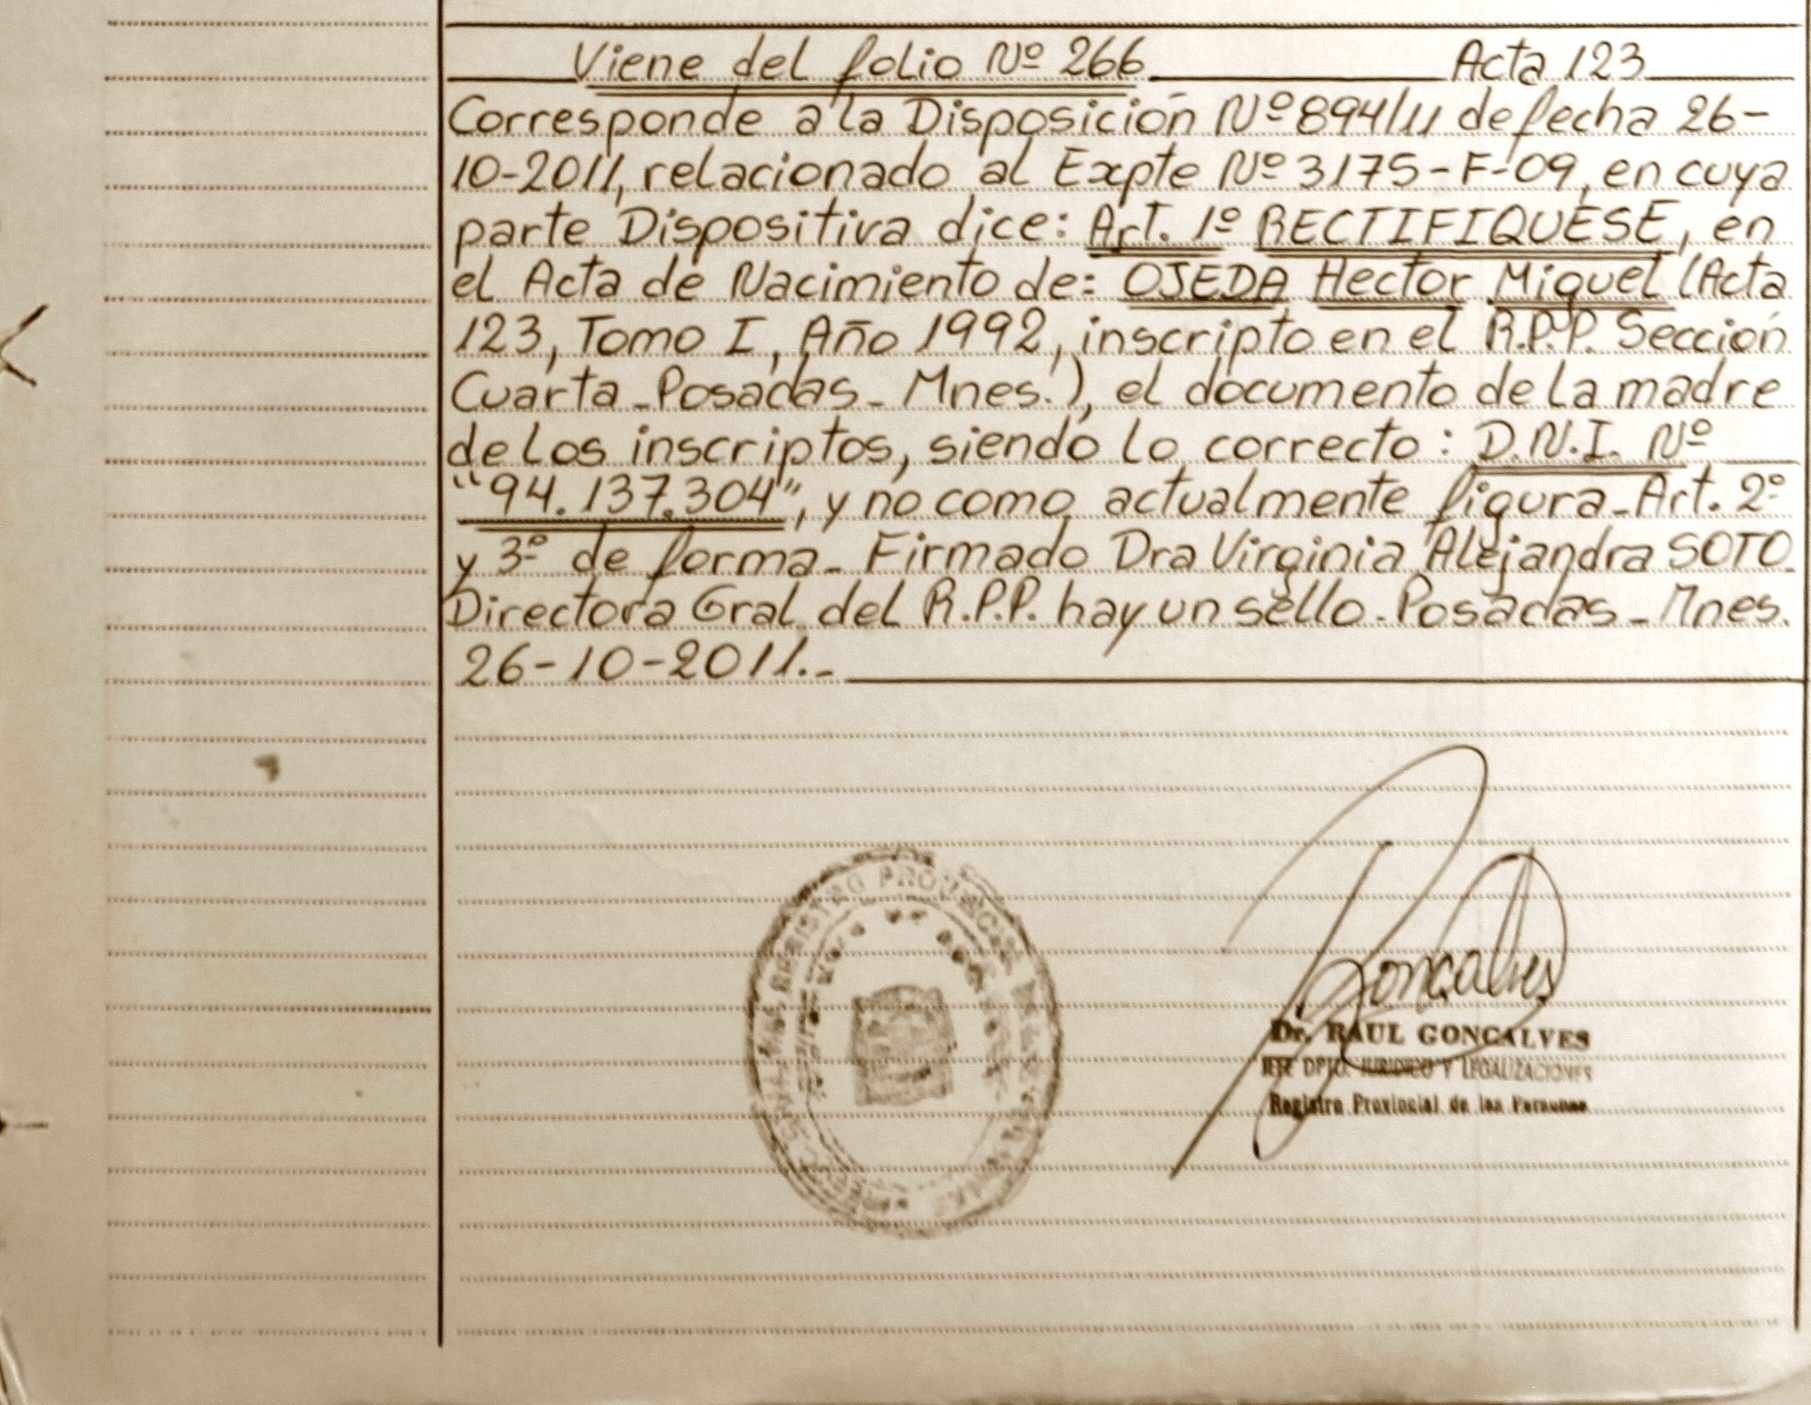 Viene del folio Nº 266 Acta 123
Corresponde a la Disposición Nº 894/11 de fecha 26-
10-2011, relacionado al Expte Nº 3175-F-09, en cuya
parte Dispositiva dice: Art. 1º RECTIFIQUESE, en
el Acta de Nacimiento de: OJEDA Hector Miguel (Acta
123, Tomo I, Año 1992, inscripto en el R.P.P. Sección
Cuarta - Posadas - Mnes.), el documento de la madre
de los inscriptos, siendo lo correcto: D.N.I. Nº
"94.137.304", y no como actualmente figura - Art. 2º
y 3º de forma - Firmado Dra Virginia Alejandra SOTO
Directora Gral del R.P.P. hay un sello - Posadas - Mnes.
26-10-2011.-
REGISTRO PROVINCIAL
Goncalves
Dr. RAUL GONCALVES
JEFE DPTO. JURIDICO Y LEGALIZACIONES
Registro Provincial de las Personas